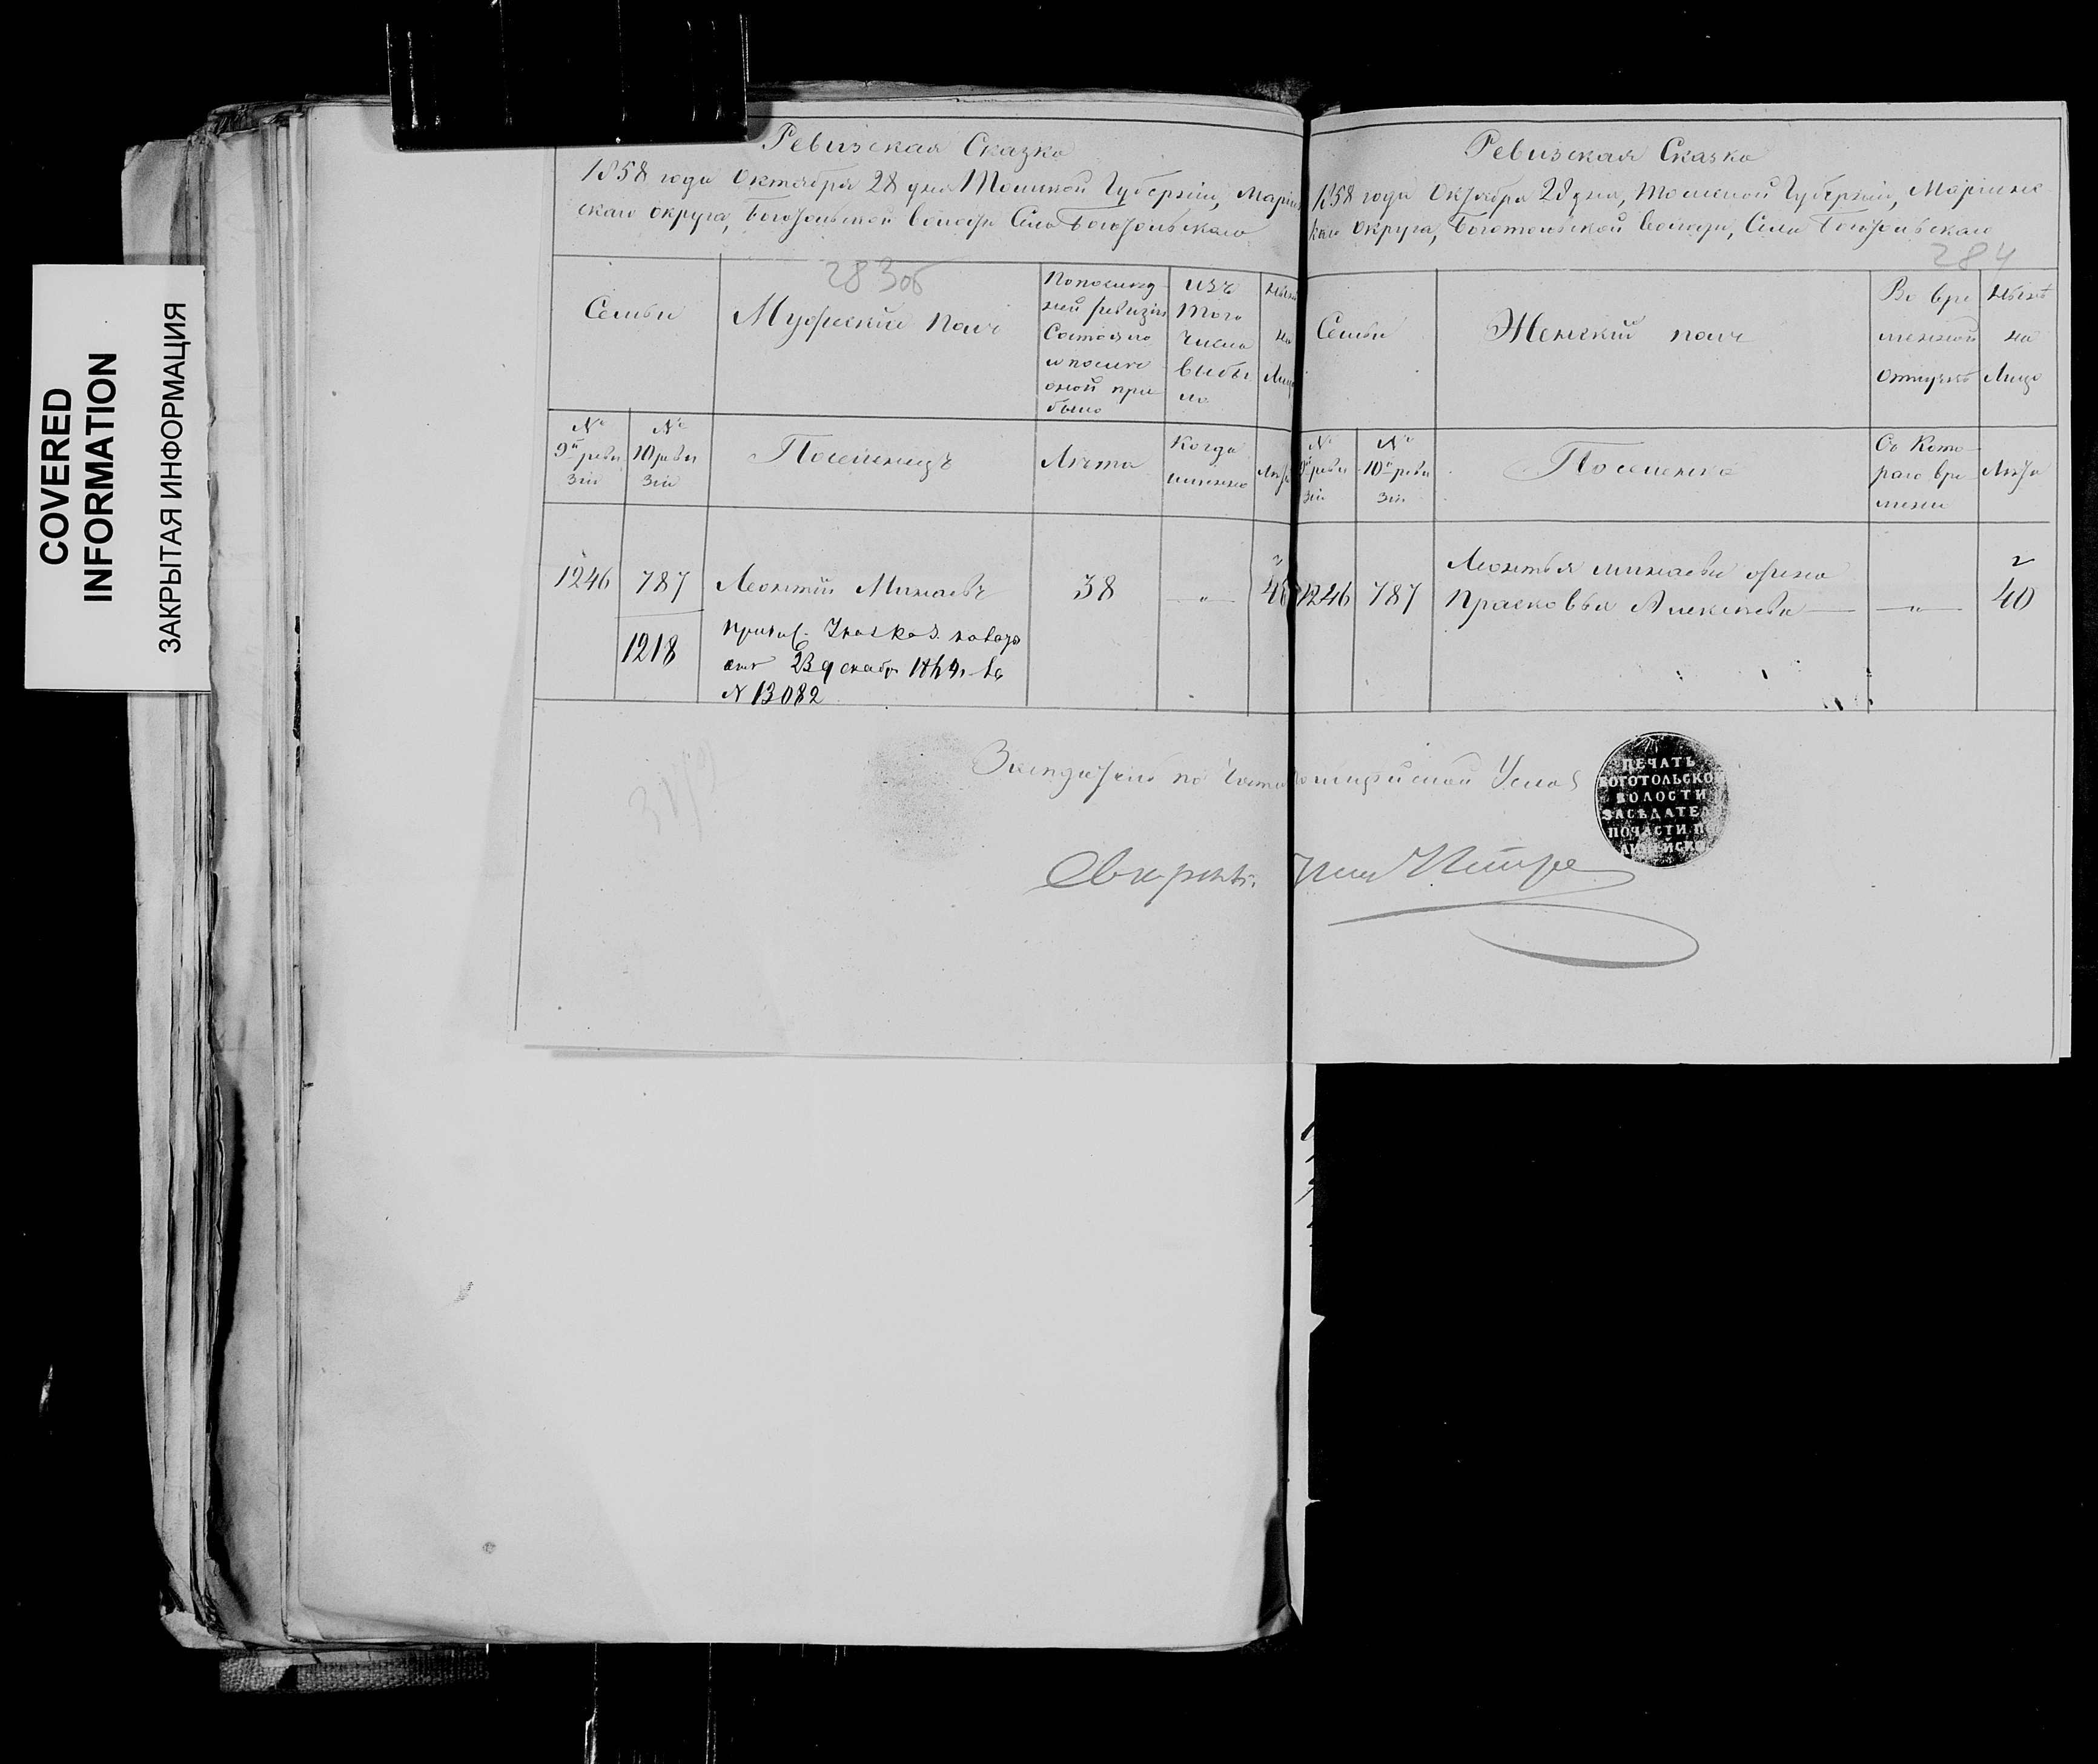 COVERED
INFORMATION
ЗАКРЫТАЯ ИНФОРМАЦИЯ
Ревизская Сказка
1858 года Октября 28 дня Томской Губерніи, Маріин
скаго округа, Боготольской волости Села Боготольскаго
283об
Семьи
Мужескій полъ
По послед
ней ревизіи
Состояло
и после
оной при
было
изъ
того
числа
выбы
ло
ныне
на
Лицо
№
9й реви
зіи
№
10 реви
зіи
Поселенецъ
Лета
Когда
именно
Лета
1246
787
Леонтій Минаевъ
38
"
48
1218
23 декабр 1864
N 13082
Ревизская Сказка
1858 года Октября 28 дня, Томской Губерніи, Маріинс
каго Округа, Боготольской Волости, Села Боготольскаго
284
Семьи
Женскій полъ
Во вре
менной
отлучке
Ныне
на
Лицо
№
9й реви
зіи
№
10й реви
зіи
Поселенка
Съ Кото
раго вре
мени
Лета
1246
787
Леонтья Минаева жена
Прасковья Алексеева
"
40
Заседатель по части полицейской
ПЕЧАТЬ
БОГОТОЛЬСКО
ВОЛОСТИ
ЗАСѢДАТЕ
ПОЧАСТИ П
ЛИЦЕЙСКО